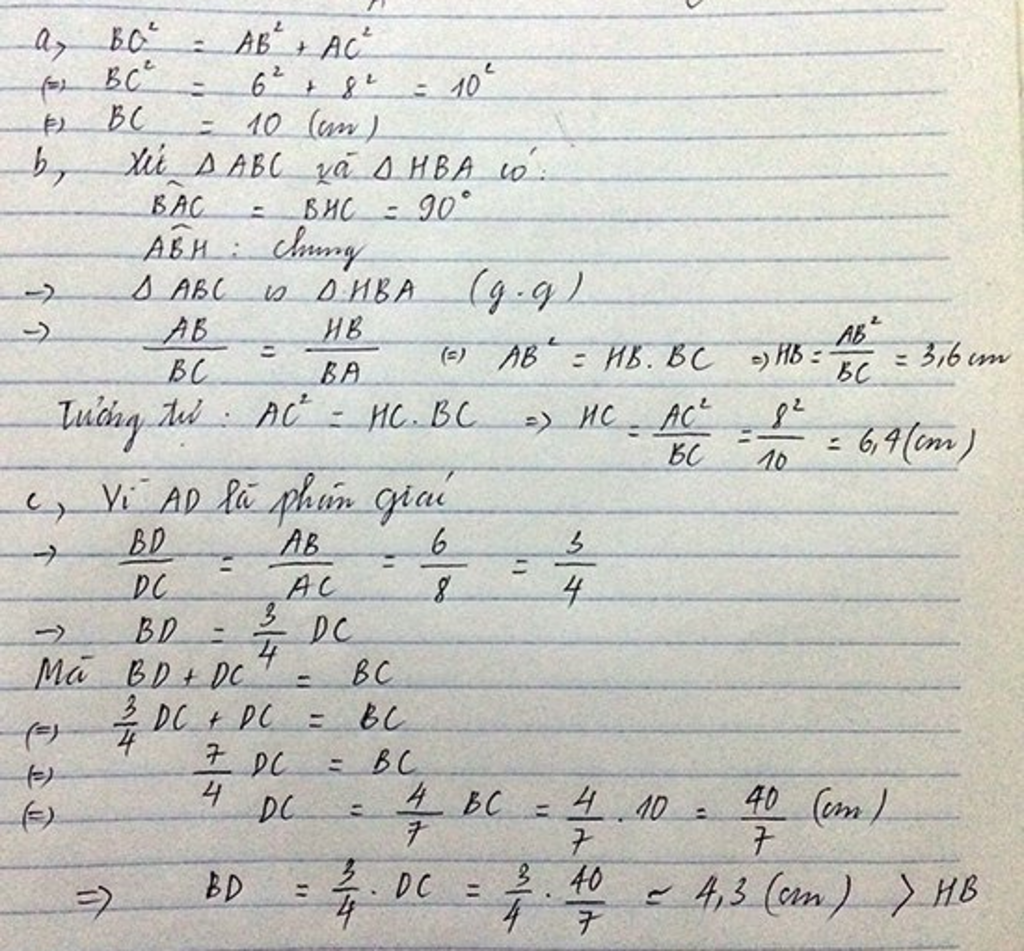 a, BC² = AB² + AC²
(=) BC² = 6² + 8² = 10²
(=) BC = 10 (cm)
b, Xét Δ ABC và Δ HBA có:
BÂC = BĤC = 90°
AB̂H : chung
-> Δ ABC ∽ Δ HBA (g.g)
-> AB/BC = HB/BA (=) AB² = HB. BC => HB = AB²/BC = 3,6 cm
Tương tự : AC² = HC. BC => HC = AC²/BC = 8²/10 = 6,4 (cm)
c, Vì AD là phân giác
-> BD/DC = AB/AC = 6/8 = 3/4
-> BD = 3/4 DC
Mà BD + DC = BC
(=) 3/4 DC + DC = BC
(=) 7/4 DC = BC
(=) DC = 4/7 BC = 4/7 . 10 = 40/7 (cm)
=> BD = 3/4 . DC = 3/4 . 40/7 ≃ 4,3 (cm) > HB